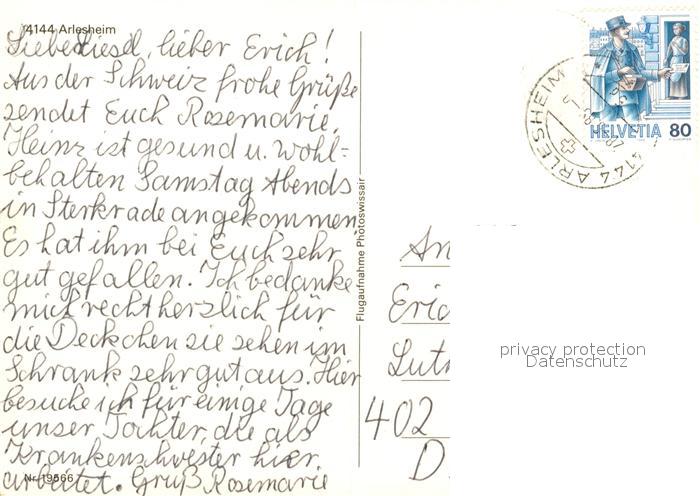 4144 Arlesheim
Liebe Liesel, lieber Erich!
Aus der Schweiz frohe Grüße
sendet Euch Rosemarie,
Heinz ist gesund u. wohl=
behalten Samstag Abends
in Sterkrade angekommen.
Es hat ihm bei Euch sehr
gut gefallen. Ich bedanke
mich recht herzlich für
die Deckchen sie sehen im
Schrank sehr gut aus. Hier
besuche ich für einige Tage
unser Tochter, die als
Krankenschwester hier
arbeitet. Gruß Rosemarie
Nr. 19566
Flugaufnahme Photoswissair
HELVETIA 80
4144 ARLESHEIM
An
Eric
Lut
402
D
privacy protection
Datenschutz